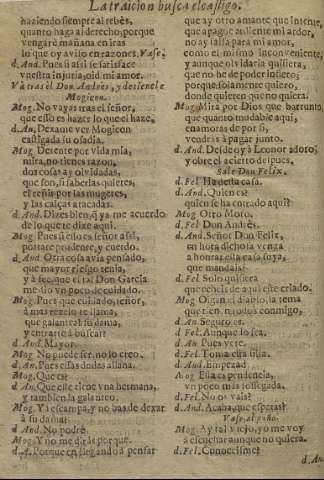 La traicion busca el castigo.
haziendo siempre al rebès,
quanto haga al derecho, porque
vengarè mañana en iras
lo que oy aviso en razones. Vase.
d. And. Pues si assi se satisface
vuestra injuria, oid mi amor.
Và tras el Don Andrès, y detienele
Mogicon.
Mog. No vayas tras el, señor,
que esso es hazer lo que el haze.
d. An. Dexame ver Mogicon
castigada su osadia.
Mog. Detente por vida mia,
mira, no tienes razon,
dos cosas ay olvidadas,
que son, si saberlas quieres,
el reñir por las mugeres,
y las calças atacadas.
d. And. Dizes bien, q̃ ya me acuerdo
de lo que te dize aqui.
Mog. Pues si esso es señor assi,
portate prudente, y cuerdo.
d. And. Otra cosa avia pensado,
que mayor riesgo tenia,
y à fee, que el tal Don Garcia
me diò vn poco de cuidado.
Mog. Pues que cuidado, señor,
à mas rezelo te llama,
que galantear su dama,
y entrarte à buscar?
d. And. Mayor.
Mog. No puede ser, no lo creo.
d. An. Pues essas dudas allana.
Mog. Que es?
d. An. Que este tiene vna hermana,
y tambien la galanteo.
Mog. Ya escampa, y no has de dexar
à su dama?
d. And. No podrè.
Mog. Y no me diràs por què.
d. A. Porque en llegando à pensar
que ay otro amante que intente,
que apague ardiente mi ardor,
no ay salsa para mi amor,
como el mismo inconveniente,
y aunque olvidarla quisiera,
que no he de poder infiero;
porque solamente quiero,
donde quieren que no quiera.
Mog. Mira por Dios que barrunto
que quanto mudable aqui,
enamoras de por si,
vendràs à pagar junto.
d. And. Desde oy à Leonor adoro;
y obre el acierto despues.
Sale Don Felix.
d. Fel. Ha desta casa.
d. And. Quien es?
quien se ha entrado aqui?
Mog. Otro Moro.
d. Fel. Don Andrès.
d. And. Señor Don Felix,
en hora dichosa venga
à honrar esta casa suya,
que mandais?
d. Fel. Solo quisiera
que echeis de aqui este criado.
Mog. Oigan el diablo, la tema
que tienen todos conmigo,
d. An. Seguro es.
d. Fel. Aunque lo sea.
d. An. Pues vete.
d. Fel. Toma essa silla.
d. And. Empezad.
Mog. Ella es pendencia,
vn poco mas sossegada.
d. Fel. No os vais?
d. And. Acaba, que esperas?
Vase al paño.
Mog. Ay tal viejo, yo me voy
à escuchar aunque no quiera.
d. Fel. Conoceisme?
d. An.